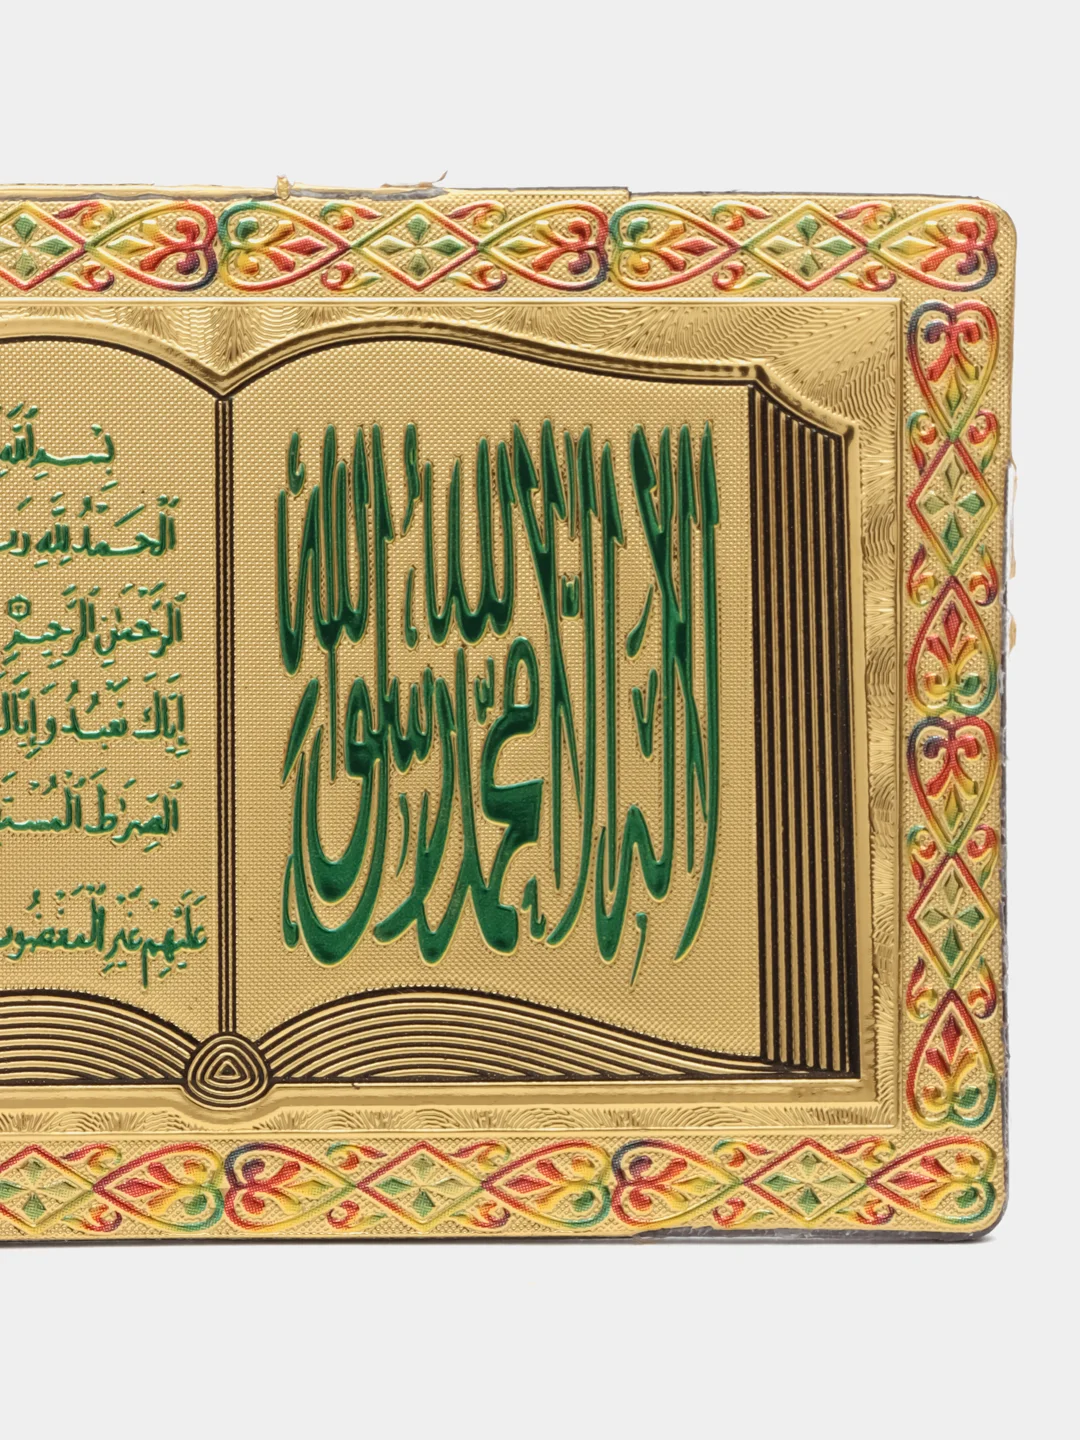 لا إله إلا الله
محمد رسول الله
بِسْمِ اللّٰهِ
اَلْحَمْدُ لِلّٰهِ رَبِّ
اَلرَّحْمٰنِ الرَّحِيمِ
إِيَّاكَ نَعْبُدُ وَإِيَّاكَ
الصِّرَٰطَ الْمُسْتَ
عَلَيْهِمْ غَيْرِ الْمَغْضُوبِ